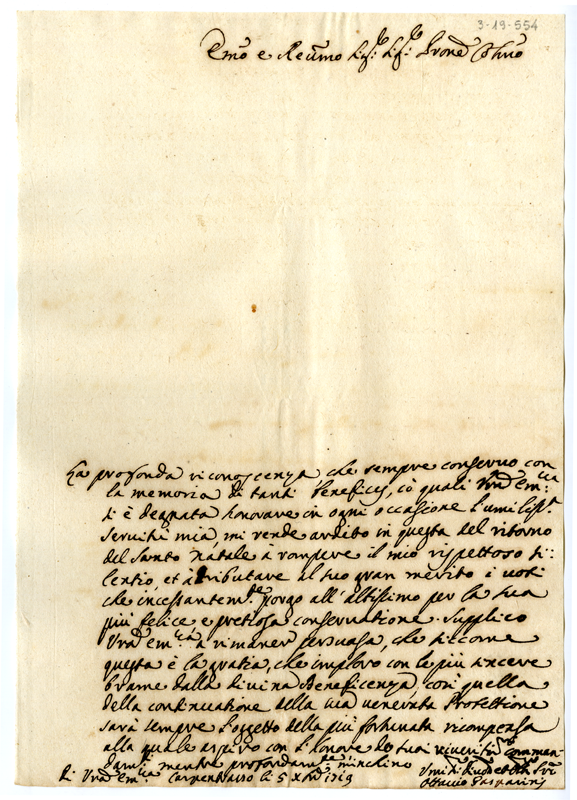 3-19-554
Emo e Reumo Sigr: Sigr: Prone Ohmo
La profonda riconoscenza che sempre conservo con
la memoria di tanti beneficij, co' quali Vra Em:za
si è degnata honorare in ogni occasione l'umiliss.a
servitù mia, mi rende ardito in questa del ritorno
del Santo Natale à rompere il mio rispettoso si:
lentio, et à tributare al suo gran merito i voti
che incessantem.te porgo all'altissimo per la sua
più felice e prettosa conservatione. Supplico
Vra em.za à rimaner persuasa, che siccome
questa è la gratia, che imploro con le più sincere
brame dalla divina Beneficenza, così quella
della continuatione della sua venerata Protettione
sarà sempre l'oggetto della più fortunata ricompensa
alla quale aspiro con l'honore de suoi riveriti comman-
dam.ti mentre profondam.te m'inchino
Di Vra em.za Carpentrasso li 5 Xbre 1719
Umil: Divot et Obb Srv
Ottavio Gasparini